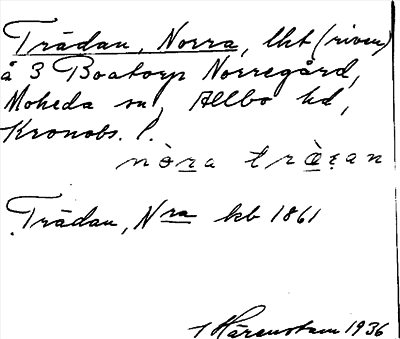 Trädan, Norra, lht (riven)
å 3 Boatorp Norregård,
Moheda sn, Allbo hd,
Kronobs. l.
nò̱ra trà̱ẓan
Trädan, Nra kb 1861
Härenstam 1936